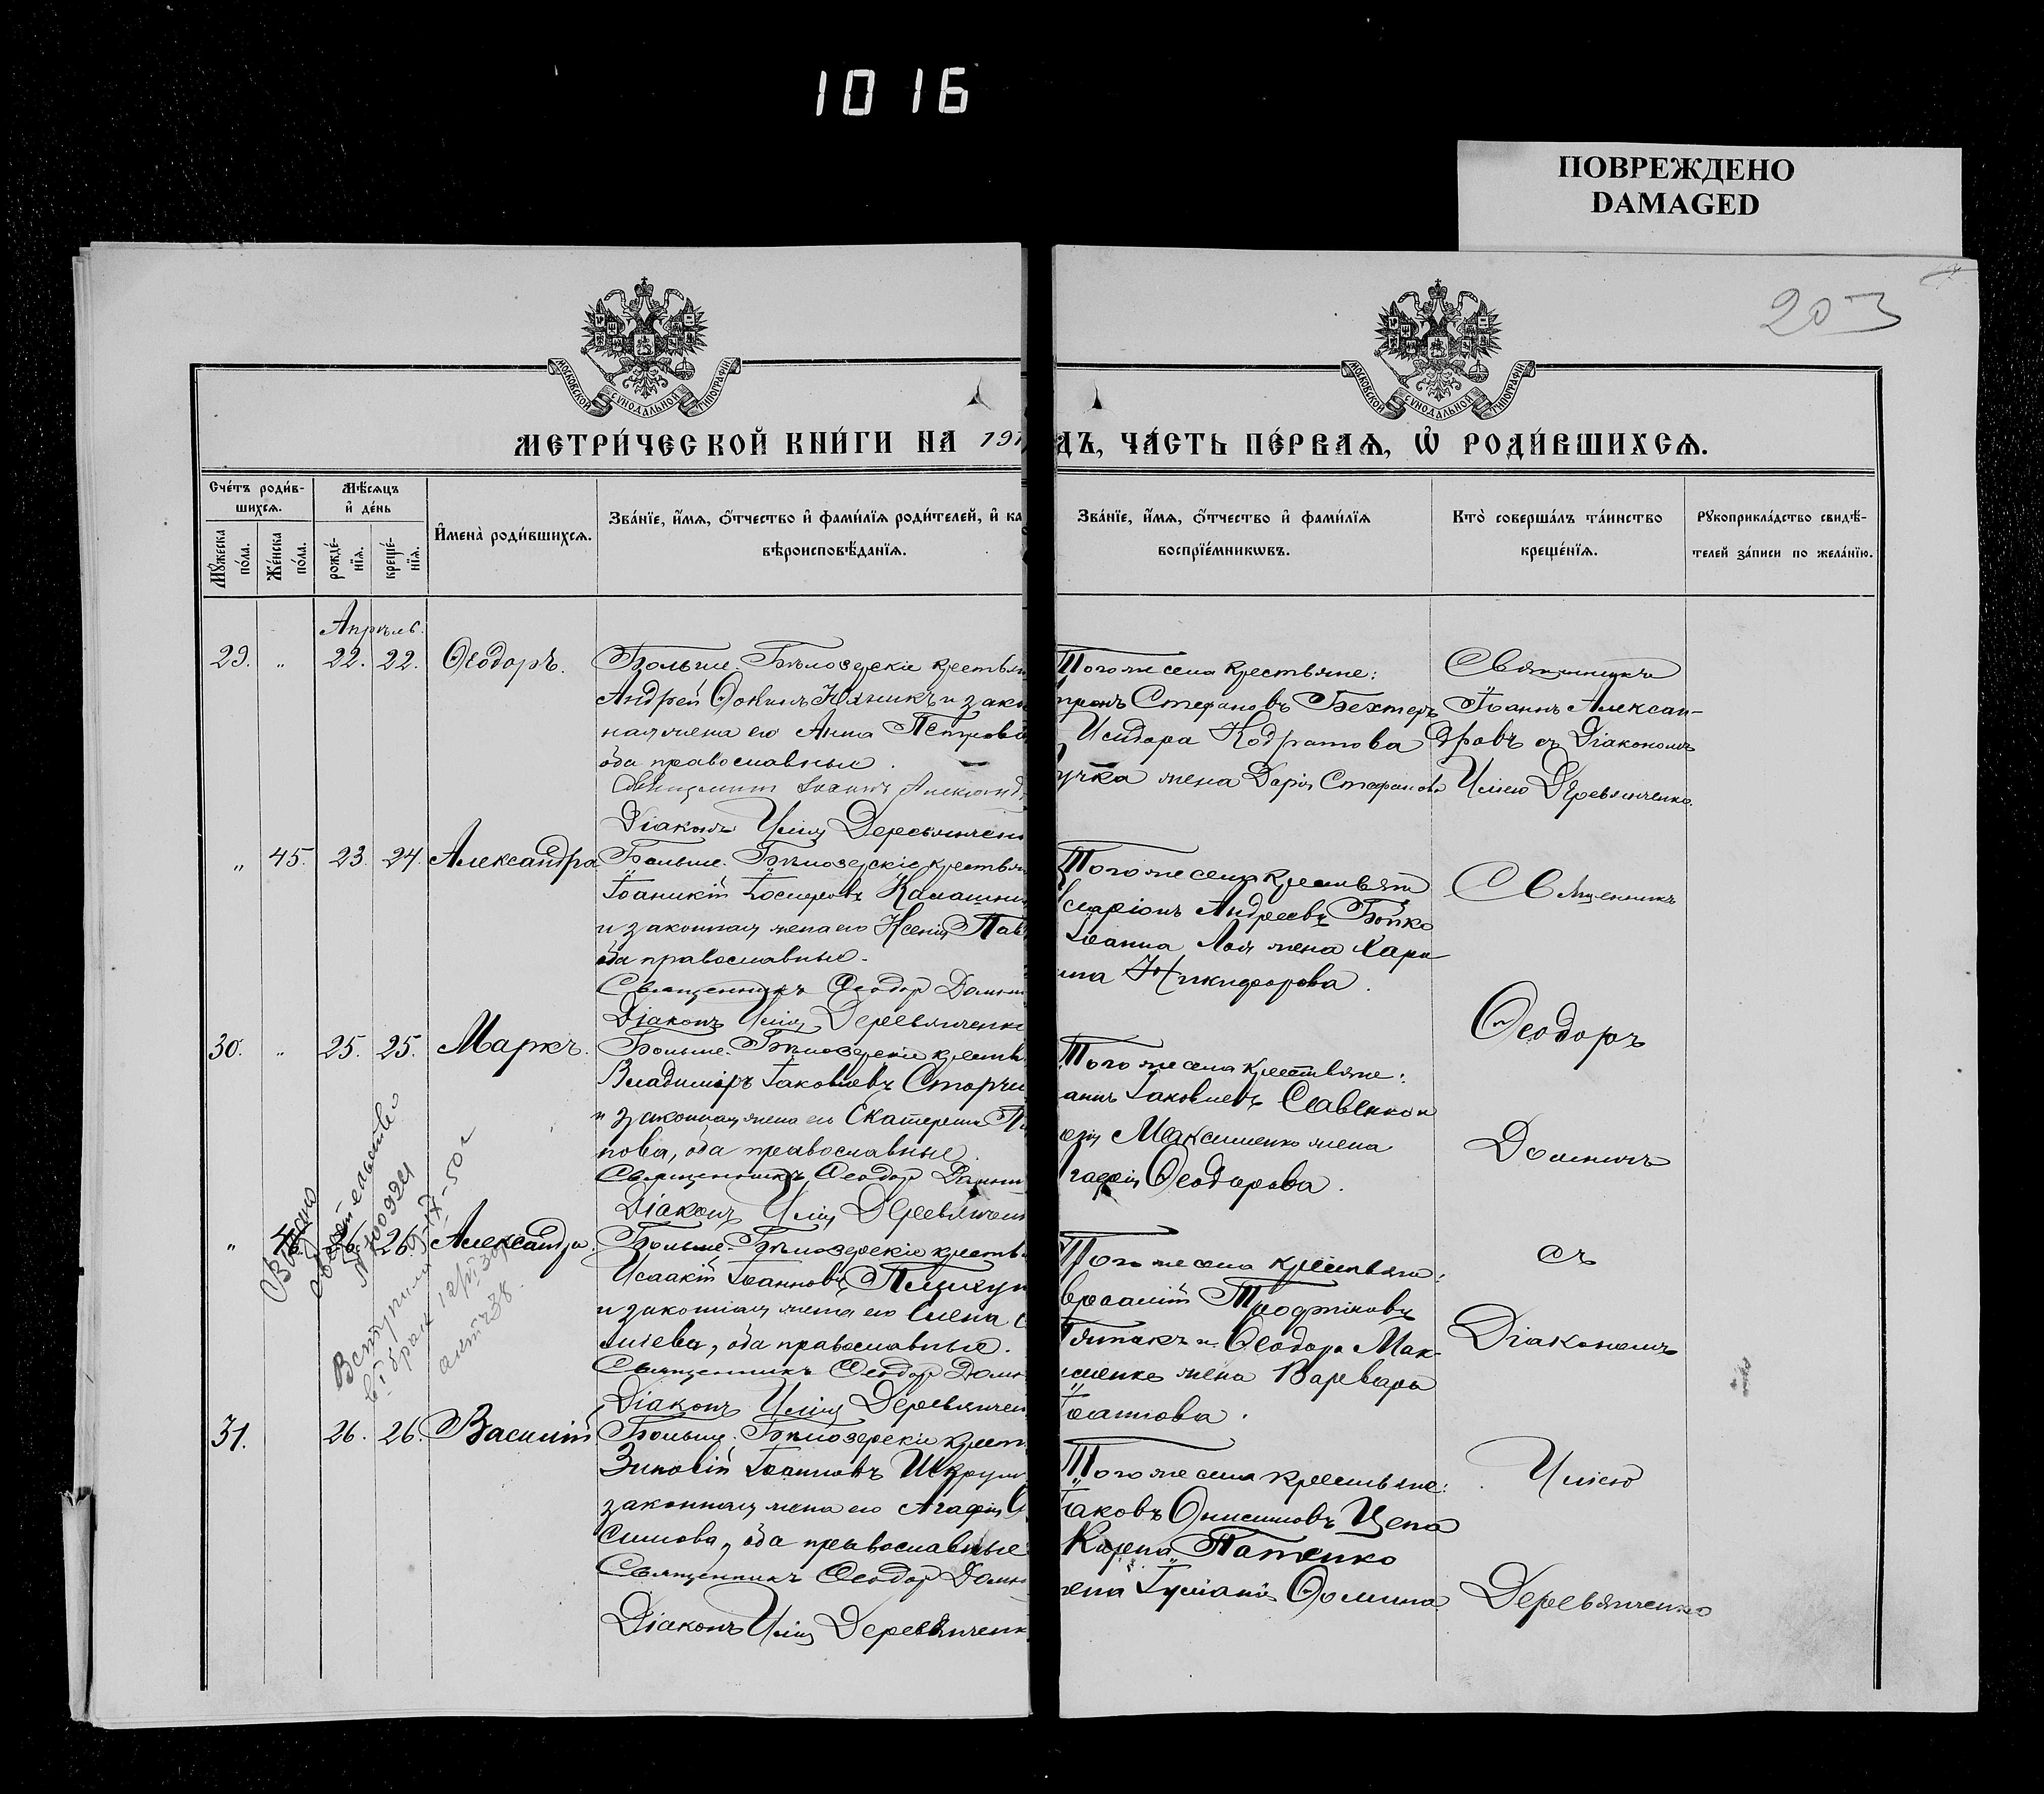 1016
ПОВРЕЖДЕНО
DAMAGED
203
МОСКОВСКОЙ СѴНОДАЛЬНОЙ ТИПОГРАФІИ
МОСКОВСКОЙ СѴНОДАЛЬНОЙ ТИПОГРАФІИ
МЕТРИ́ЧЕСКОЙ КНИ́ГИ НА 191
ДЪ, ЧА́СТЬ ПЕ́РВАѦ, Ѡ҆ РОДИ́ВШИХСѦ.
Сче́тъ роди́в-
шихсѧ.
Мѹ́жеска по́ла.
Же́нска по́ла.
Мѣ́сѧцъ
и҆ де́нь
рожде́-
нїѧ.
креще́-
нїѧ.
И҆мена̀ роди́вшихсѧ.
Зва́нїе, и҆́мѧ, ѻ҆́тчество и҆ фами́лїѧ роди́телей, и҆ ка
вѣроисповѣ́данїѧ.
Зва́нїе, и҆́мѧ, ѻ҆́тчество и҆ фами́лїѧ
воспрїе́мникѡвъ.
Кто̀ соверша́лъ та́инство
креще́нїѧ.
Рѹкоприкла́дство свидѣ́-
телей за́писи по жела́нїю.
Апрѣль.
29. „ 22. 22. Ѳеодоръ.
Больше-Бѣлозерскіе крестьян
Андрей Ѳокинъ и зако
ная жена его Анна Петрова
оба православные.
Священникъ Іоаннъ Александ
Діаконъ Илія Деревянченк
Того же села крестьяне:
Стефановъ Бехтеръ
Исидора Кодратова
учка жена Дарія Стефанова
Священникъ
Іоаннъ Алексан-
дровъ съ Діакономъ
Иліею Деревянченко.
„ 45. 23. 24. Александра
Больше-Бѣлозерскіе крестьян
Іоаникій Іосифовъ Калашни
и законная жена его Ксенія Пав
оба православные.
Священникъ Ѳеодор Домн
Діаконъ Илія Деревянченко
Того же села крестьяне
ларіонъ Андреевъ Бойко
Іоанна Лоя жена Хари
на Никифорова.
Священникъ
Ѳеодоръ
30. „ 25. 25. Маркъ.
Больше-Бѣлозерскіе крестьян
Владиміръ Іаковлевъ Сторч
и законная жена его Екатерина
пова, оба православные.
Священникъ Ѳеодор Домн
Діаконъ Илія Деревянченк
Того же села крестьяне:
аннъ Іаковлевъ Савенко и
Максименко жена
гафія Ѳеодорова.
„ 26. 26. Александра.
Больше-Бѣлозерскіе крестьян
Исаакій Іоанновъ
и законная жена его Елена
ліева, оба православные.
Священникъ Ѳеодор Домн
Діаконъ Илія Деревянчен
Того же села крестьяне:
и Ѳеодора Мак-
сименко жена Варвара
Іоаннова.
съ
Діакономъ
Выдано
свидетельство
Вступила
в брак
31. 26. 26. Василій
Больше-Бѣлозерскіе крест
Зиновій Іоанновъ Шкрум
законная жена его Агафія
симова, оба православные
Священникъ Ѳеодор Домн
Діаконъ Илія Деревянченк
Того же села крестьяне:
Іаковъ Онисимовъ Цепа
Карпа Патенко
жена Іуліанія Ѳомина.
Иліею
Деревянченко